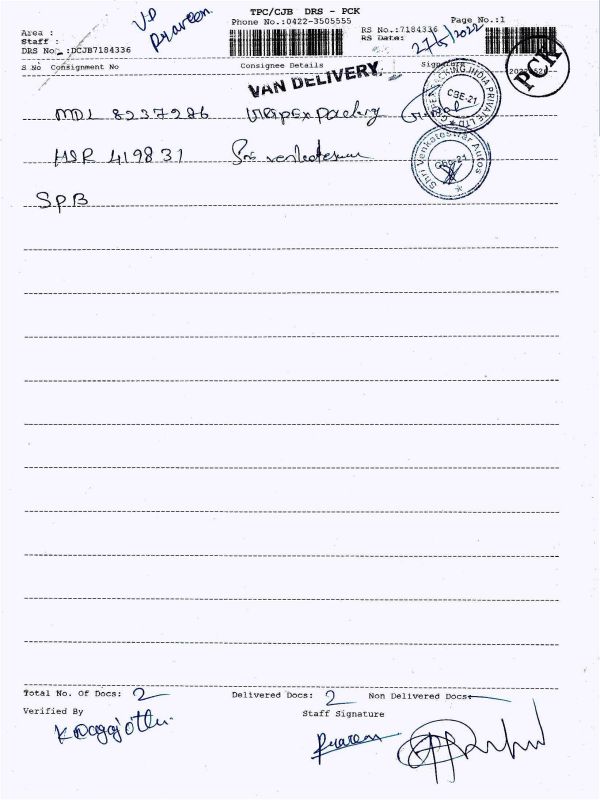 TPC/CJB DRS - PCK
Phone No.:0422-3505555
Page No.:1
VD
Praveen
Area :
Staff :
DRS No. :DCJB7184336
RS No.:7184336
RS Date:
27/5/2022
PCK
S No Consignment No Consignee Details Signature
VAN DELIVERY
CBE-21
KING INDIA PRIVATE LTD
MDL 8237286
HSR 419831 Sri venkateswar
Shri Venkateswar Autos
CBE-21
SPB
Total No. Of Docs: 2 Delivered Docs: 2 Non Delivered Docs
Verified By Staff Signature
Praveen